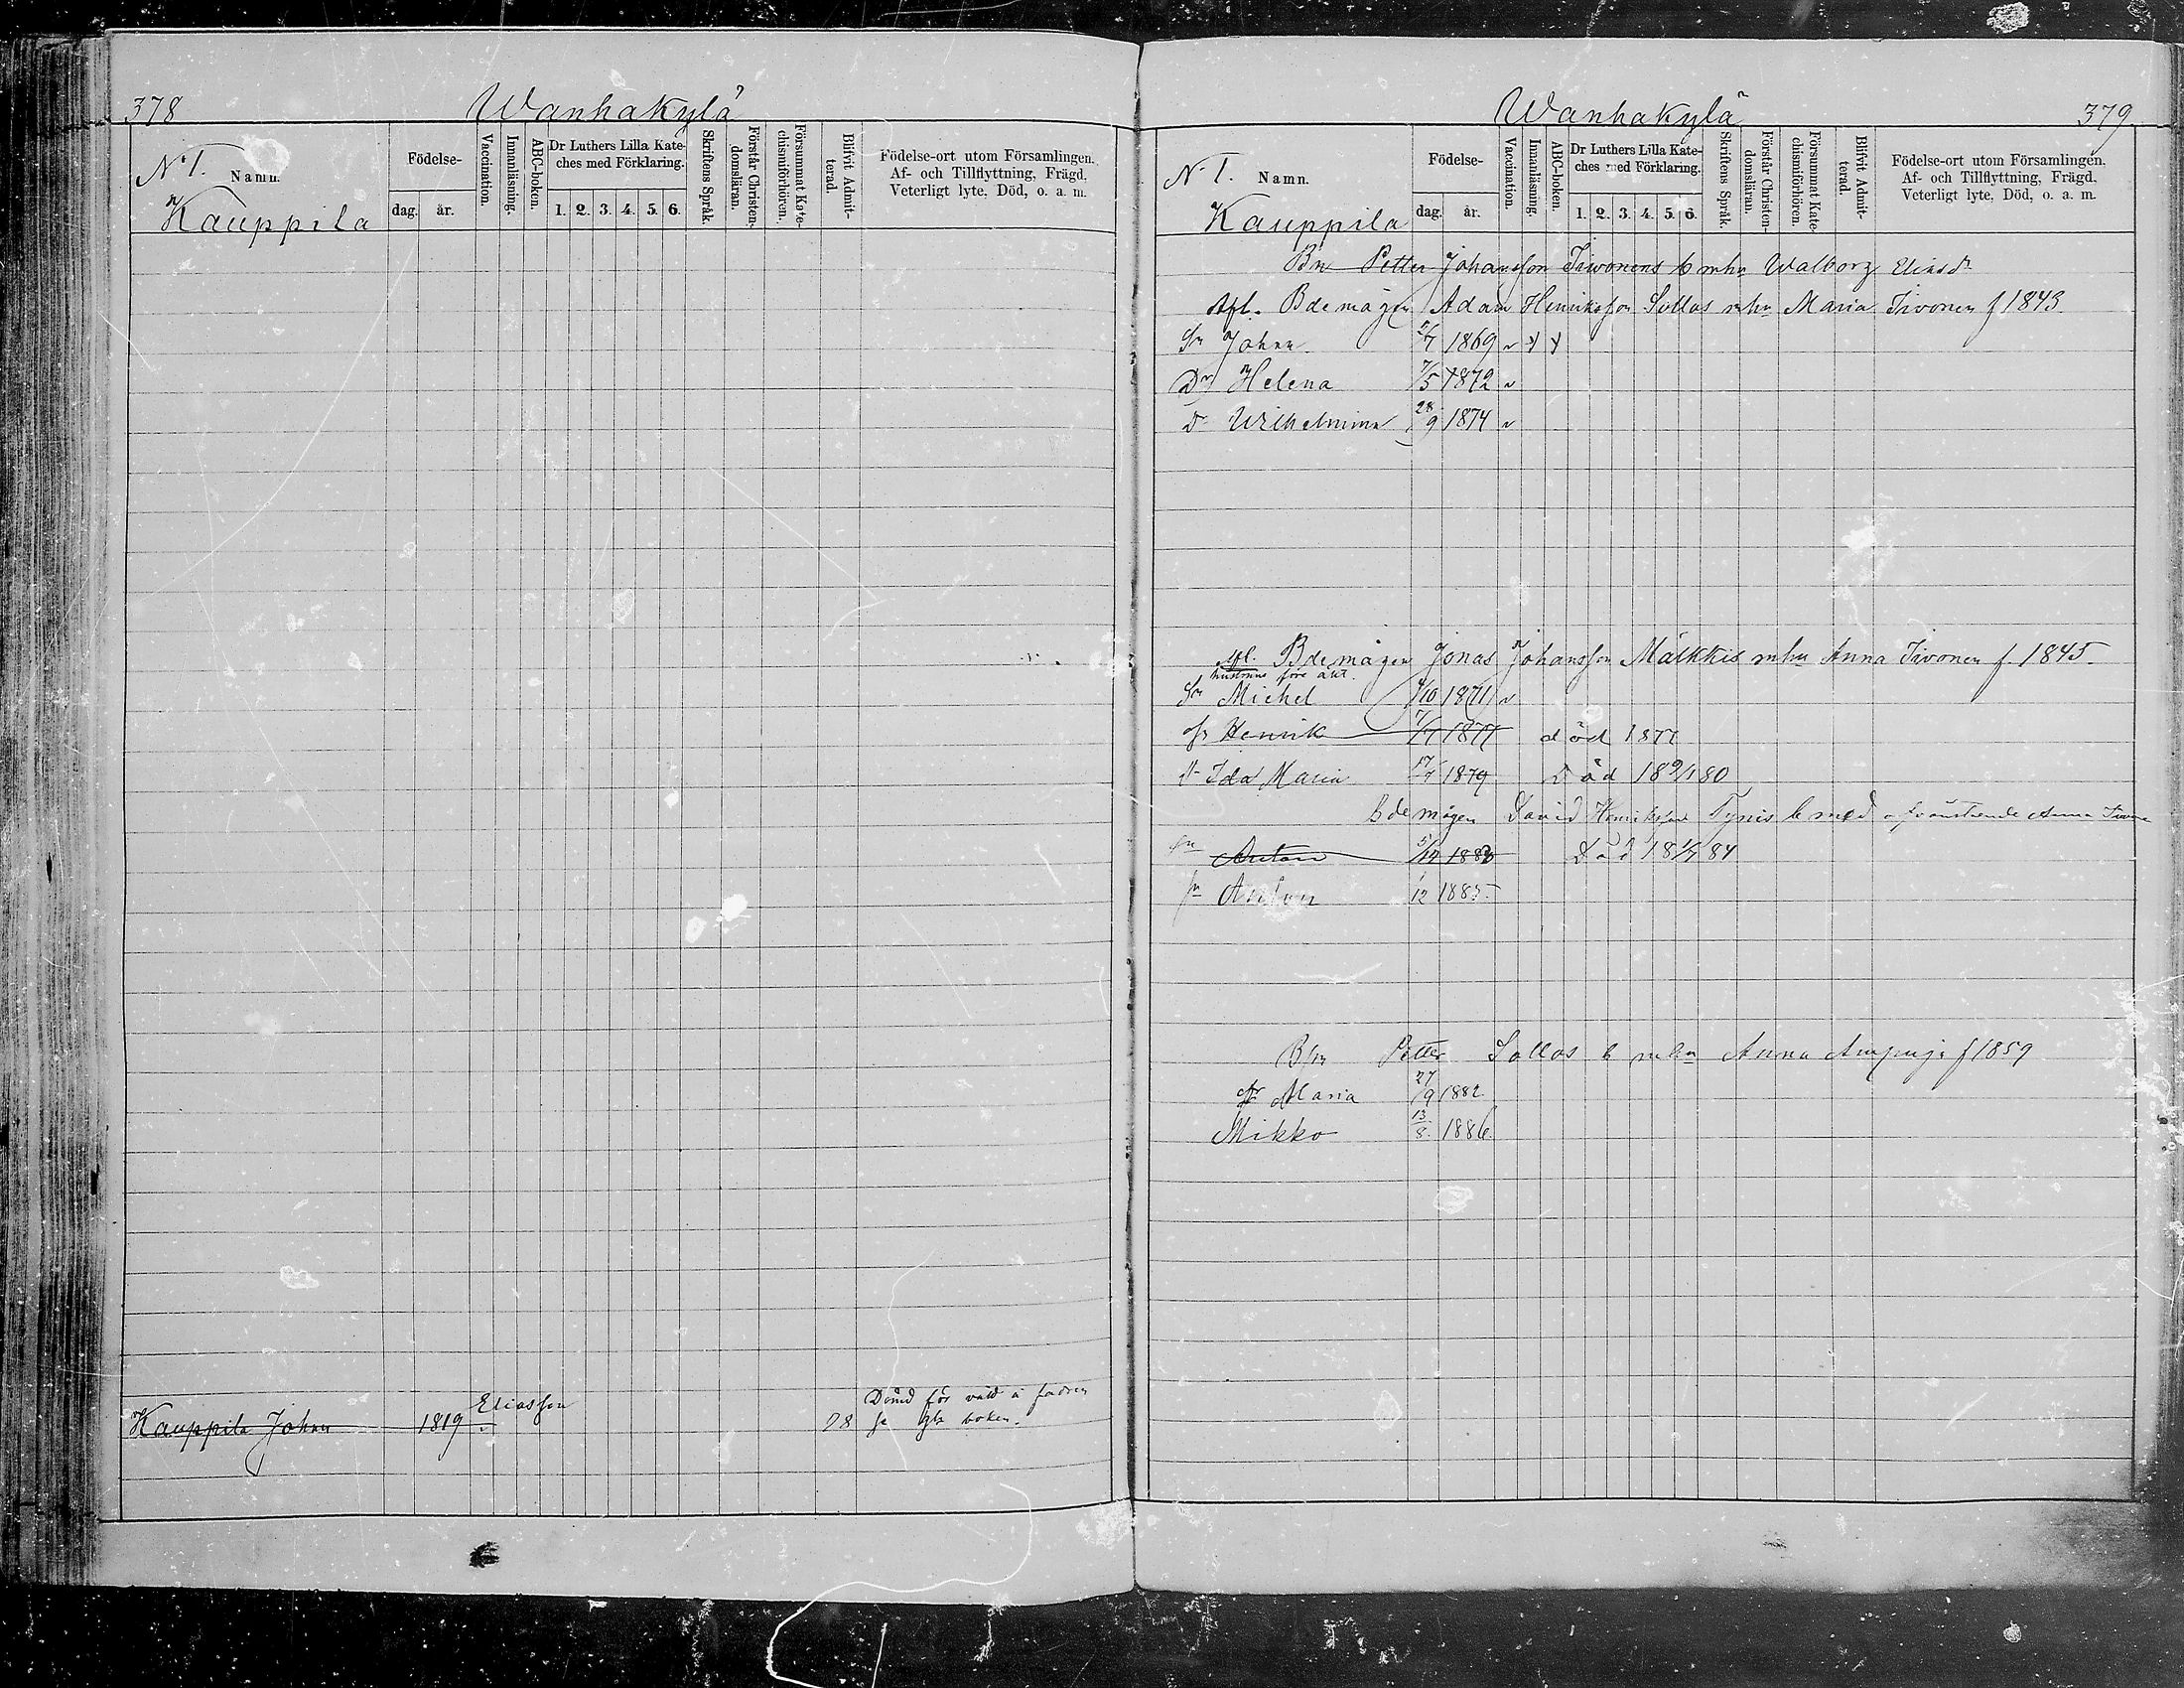 378 Wanhakylä
N. 1. Namn. Födelse- dag. år. Vaccination. Innanläsning. ABC-boken. Dr Luthers Lilla Kateches med Förklaring. 1. 2. 3. 4. 5. 6. Skriftens Språk. Förstår Christendomsläran. Försummat Katechismiförhören. Blifvit Admitterad. Födelse-ort utom Församlingen. Af- och Tillflyttning, Frägd. Veterligt lyte, Död, o. a. m.
Kauppila
Eliasson
Dömd för våld å fadren
Kauppila Johan 1819 78 se boken.
Wanhakylä 379
N. 1. Namn. Födelse- dag. år. Vaccination. Innanläsning. ABC-boken. Dr Luthers Lilla Kateches med Förklaring. 1. 2. 3. 4. 5. 6. Skriftens Språk. Förstår Christendomsläran. Försummat Katechismiförhören. Blifvit Admitterad. Födelse-ort utom Församlingen. Af- och Tillflyttning, Frägd. Veterligt lyte, Död, o. a. m.
Kauppila
Bn Petter Johansson Tiwonens b mhu Walborg Eliasdr
Afl. Bdemågen Adam Henriksson Sollas mhu Maria Tivonen f 1843.
Sn Johan 1869
Dr Helena 7/5 1872
Dr Wilhelmina 28/9 1874
afl. Bdemågen Jonas Johansson Mälkkis mhu Anna Tivonen f. 1845.
hustruns före äkt.
Sn Michel 4/10 1871
Sn Henrik 7/7 1877 död 1877
Dr Ida Maria 17/7 1879 Död 18 9/1 80
Bdemågen David Henriksson Tynis b med ofvanstående Anna
Sn Anton 5/12 1883 Död 18 1/7 84
Sn Anton 1/12 1885
Bsn Petter Sollas b mhu Anna f 1859
Dr Maria 27/9 1882
Mikko 13/8. 1886.